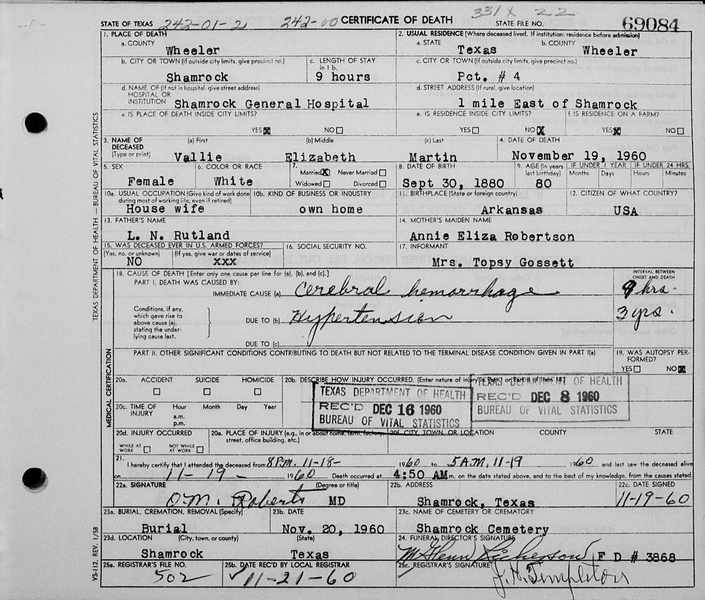 STATE OF TEXAS 242-01-2 242-00 CERTIFICATE OF DEATH 331X 22 STATE FILE NO. 69084
1. PLACE OF DEATH 2. USUAL RESIDENCE (Where deceased lived. If institution: residence before admission)
a. COUNTY a. STATE b. COUNTY
Wheeler Texas Wheeler
b. CITY OR TOWN (If outside city limits, give precinct no.) c. LENGTH OF STAY in 1 b. c. CITY OR TOWN (If outside city limits, give precinct no.)
Shamrock 9 hours Pct. # 4
d. NAME OF (If not in hospital, give street address) HOSPITAL OR INSTITUTION d. STREET ADDRESS (If rural, give location)
Shamrock General Hospital 1 mile East of Shamrock
e. IS PLACE OF DEATH INSIDE CITY LIMITS? e. IS RESIDENCE INSIDE CITY LIMITS? f. IS RESIDENCE ON A FARM?
YES X NO YES NO X YES X NO
3. NAME OF DECEASED (Type or print) (a) First (b) Middle (c) Last 4. DATE OF DEATH
Vallie Elizabeth Martin November 19, 1960
5. SEX 6. COLOR OR RACE 7. Married X Never Married Widowed Divorced 8. DATE OF BIRTH 9. AGE (In years last birthday) IF UNDER 1 YEAR Months Days IF UNDER 24 HRS. Hours Minutes
Female White Sept 30, 1880 80
10a. USUAL OCCUPATION (Give kind of work done during most of working life, even if retired) 10b. KIND OF BUSINESS OR INDUSTRY 11. BIRTHPLACE (State or foreign country) 12. CITIZEN OF WHAT COUNTRY?
House wife own home Arkansas USA
13. FATHER'S NAME 14. MOTHER'S MAIDEN NAME
L. N. Rutland Annie Eliza Robertson
15. WAS DECEASED EVER IN U.S. ARMED FORCES? (Yes, no, or unknown) (If yes, give war or dates of service) 16. SOCIAL SECURITY NO. 17. INFORMANT
NO xxx Mrs. Topsy Gossett
18. CAUSE OF DEATH [Enter only one cause per line for (a), (b), and (c).] INTERVAL BETWEEN ONSET AND DEATH
PART I. DEATH WAS CAUSED BY:
IMMEDIATE CAUSE (a) Cerebral hemorrhage 9 hrs.
Conditions, if any, which gave rise to above cause (a), stating the underlying cause last. DUE TO (b) Hypertension 3 yrs.
DUE TO (c)
PART II. OTHER SIGNIFICANT CONDITIONS CONTRIBUTING TO DEATH BUT NOT RELATED TO THE TERMINAL DISEASE CONDITION GIVEN IN PART I(a) 19. WAS AUTOPSY PERFORMED?
YES NO X
20a. ACCIDENT SUICIDE HOMICIDE 20b. DESCRIBE HOW INJURY OCCURRED. (Enter nature of injury in Part I or Part II of item 18.)
TEXAS DEPARTMENT OF HEALTH
REC'D DEC 16 1960
BUREAU OF VITAL STATISTICS
TEXAS DEPARTMENT OF HEALTH
REC'D DEC 8 1960
BUREAU OF VITAL STATISTICS
20c. TIME OF INJURY Hour Month Day Year
a.m.
p.m.
20d. INJURY OCCURRED WHILE AT WORK NOT WHILE AT WORK 20e. PLACE OF INJURY (e.g., in or about home, farm, factory, street, office building, etc.) 20f. CITY, TOWN, OR LOCATION COUNTY STATE
21. I hereby certify that I attended the deceased from 8 P.M. 11-18- 1960 to 5 A.M. 11-19 1960 and last saw the deceased alive
on 11-19- 1960 Death occurred at 4:50 AM m. on the date stated above, and to the best of my knowledge, from the causes stated.
22a. SIGNATURE (Degree or title) 22b. ADDRESS 22c. DATE SIGNED
O.M. Roberts MD Shamrock, Texas 11-19-60
23a. BURIAL, CREMATION, REMOVAL (Specify) 23b. DATE 23c. NAME OF CEMETERY OR CREMATORY
Burial Nov. 20, 1960 Shamrock Cemetery
23d. LOCATION (City, town, or county) (State) 24. FUNERAL DIRECTOR'S SIGNATURE
Shamrock Texas F D # 3868
25a. REGISTRAR'S FILE NO. 25b. DATE REC'D BY LOCAL REGISTRAR 25c. REGISTRAR'S SIGNATURE
502 11-21-60 J. H. Templeton
TEXAS DEPARTMENT OF HEALTH — BUREAU OF VITAL STATISTICS
MEDICAL CERTIFICATION
VS-112, REV. 1/58